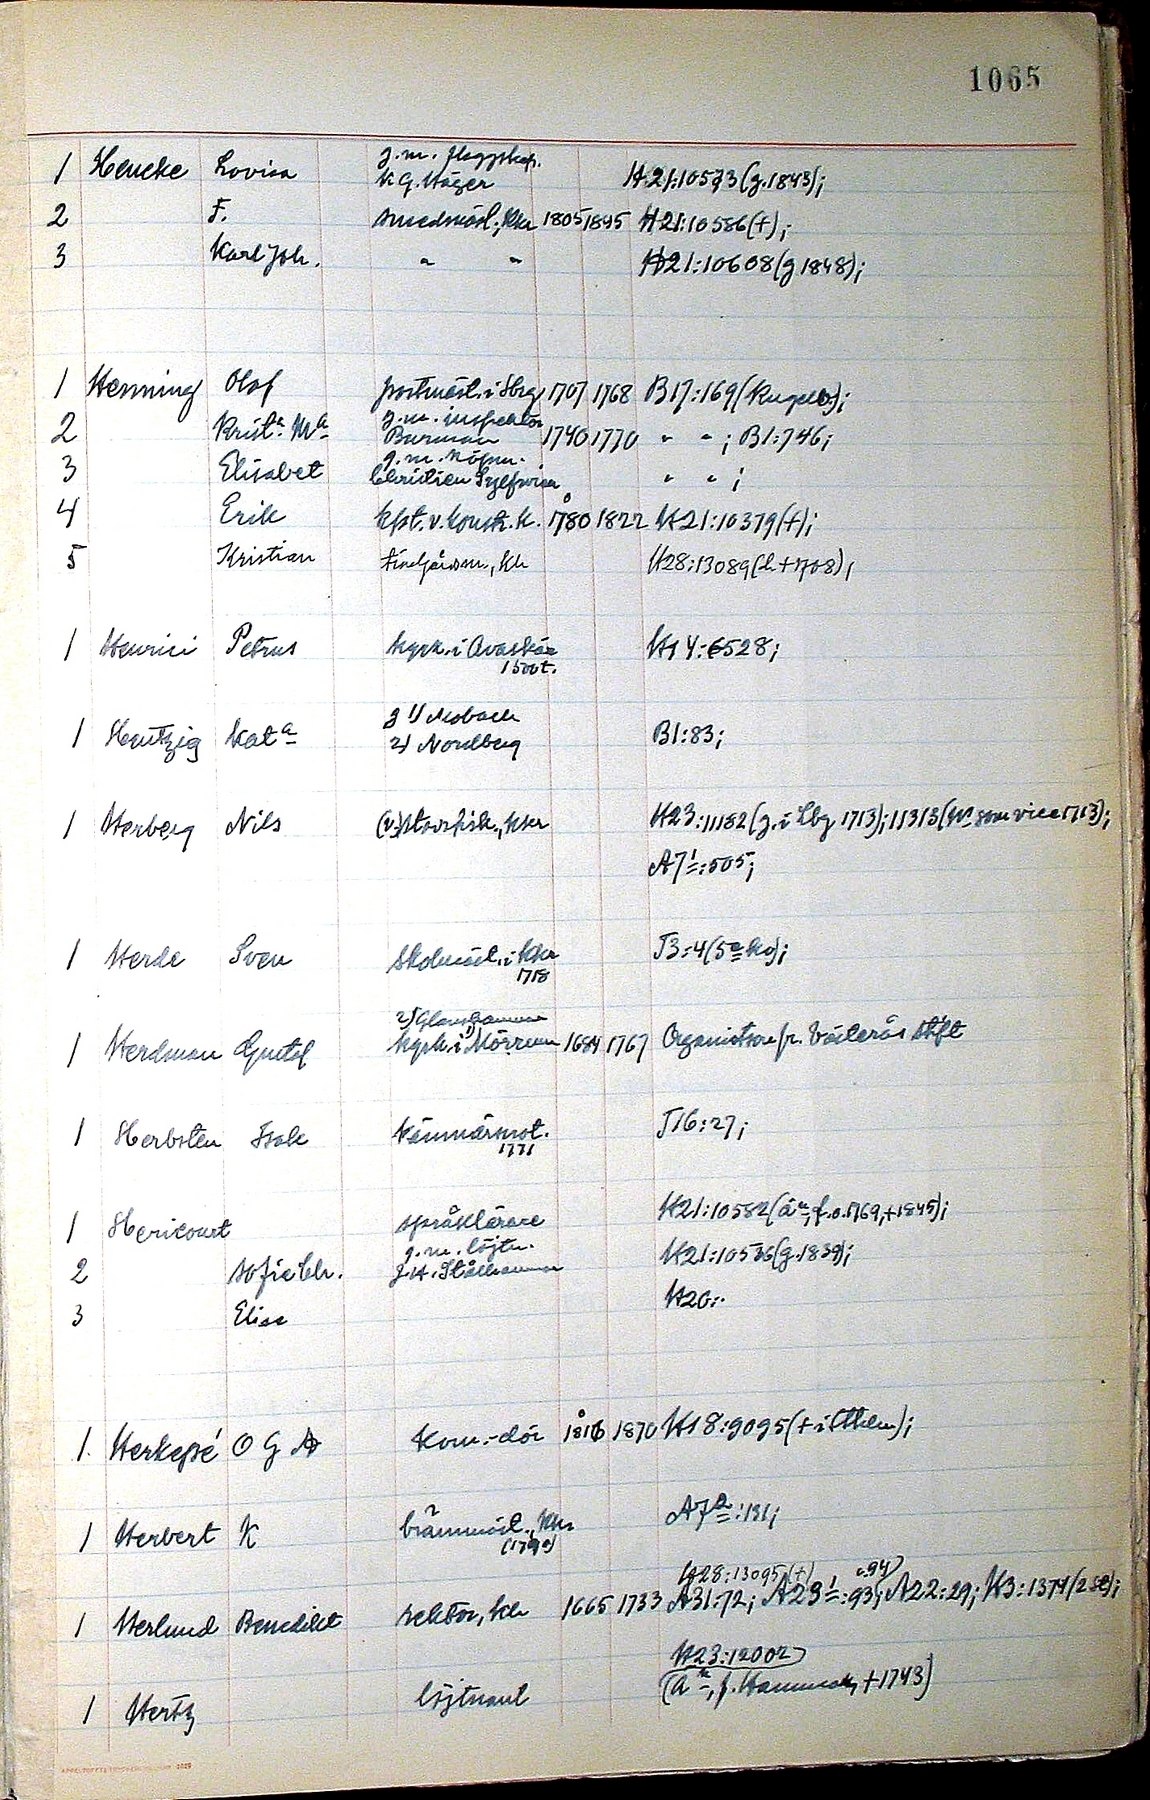 1065
1 Hencke Lovisa g.m. flaggskep. K G Häger H21:10573 (g.1843);
2 F. smedmäst., Kkr 1805 1895 H21:10586(+);
3 Karl Joh. " " H21:10608(g 1848);
1 Henning Olof postmäst. i Sbg 1707 1768 B17:169
2 Krist:a M:a g.m. inspektor Burman 1740 1770 " " ; B1:746;
3 Elisabet g.m. Christien " " ;
4 Erik kpt. v. konstr. k. 1780 1822 H21:10379(+);
5 Kristian Kkr H28:13089(h+1708);
1 Henrici Petrus kyrk. i Avaskär 1500t. H14:6528;
1 Hentzig Kat:a g 1) Mobach 2) Nordberg B1:83;
1 Herberg Nils (v.) Kkr H23:11182 (g. i Lbg 1713); 11313 (som vice 1713);
A7¹:505;
1 Herde Sven Skolmäst. i Kkr 1718 J3:4
1 Herdman Gustaf 2) Glanshammar kyrk. i 1) Mörrum 1684 1767 Organisten fr. Västerås stift
1 Herbsten Isak Kämnärsrot. 1771 J16:27;
1 Hericourt språklärare H21:10582 (ä:a, f.o.1769, +1845);
2 Sofie Ch. g.m. löjtn. J.H. Stålhammar H21:10536 (g.1839);
3 Elise H20:.
1. Herkepé O G A Kom.-dör 1816 1870 H18:9095 (+ i Sthlm);
1 Herbert K Kkr (1799) A7²:131;
H28:13095 (+) :94)
1 Herlund Benedikt rektor, Kkr 1665 1733 A31:72; A23¹:93; A22:29; H3:1374 (2 st);
H23:12002
1 Hertz löjtnant (ä:a, f. +1743)